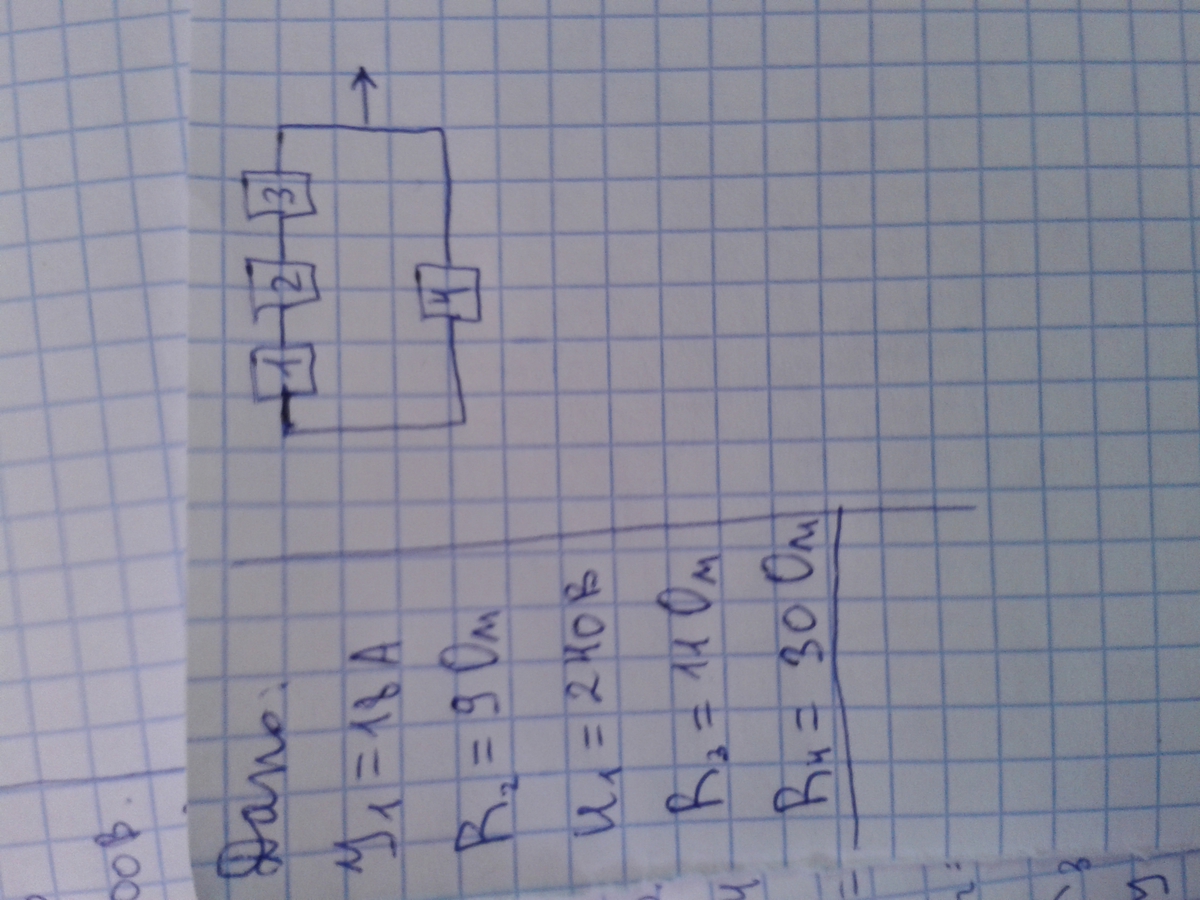 Дано:
У₁ = 18 А
R₂ = 9 Ом
U₁ = 240 В
R₃ = 11 Ом
R₄ = 30 Ом
1 2 3
4
00 В.